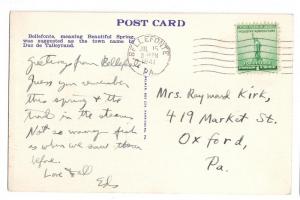 POST CARD
Bellefonte, meaning Beautiful Spring,
was suggested as the town name by
Duc de Talleyrand.
BELLEFONTE
JUL 15
PM
PA.
Greeting from Bellefonte
Guess you remember
this spring & the
trout in the stream
Not so many fish
as when we saw them
before.
Love to all
Ed
Mrs. Raymard Kirk,
419 Market St.
Oxford,
Pa.